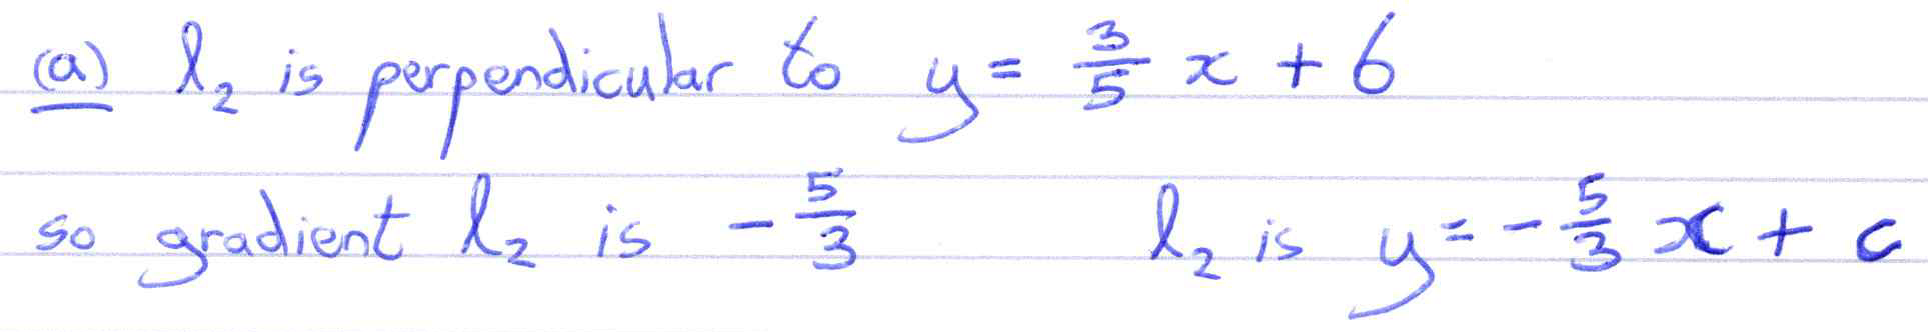 (a) l₂ is perpendicular to y = 3/5 x + 6
so gradient l₂ is - 5/3 l₂ is y = - 5/3 x + c